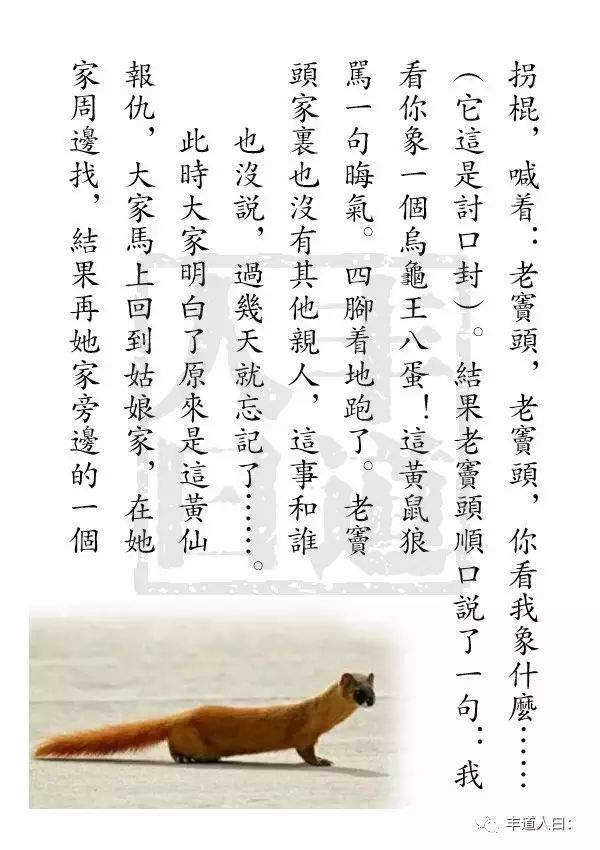 拐棍，喊着：老竇頭，老竇頭，你看我象什麼……
（它這是討口封）。結果老竇頭順口説了一句：我
看你象一個烏龜王八蛋！這黄鼠狼
駡一句晦氣。四腳着地跑了。老竇
頭家裏也沒有其他親人，這事和誰
也沒説，過幾天就忘記了……。
此時大家明白了原來是這黄仙
報仇，大家馬上回到姑娘家，在她
家周邊找，結果再她家旁邊的一個
丰道人曰
丰道人曰：